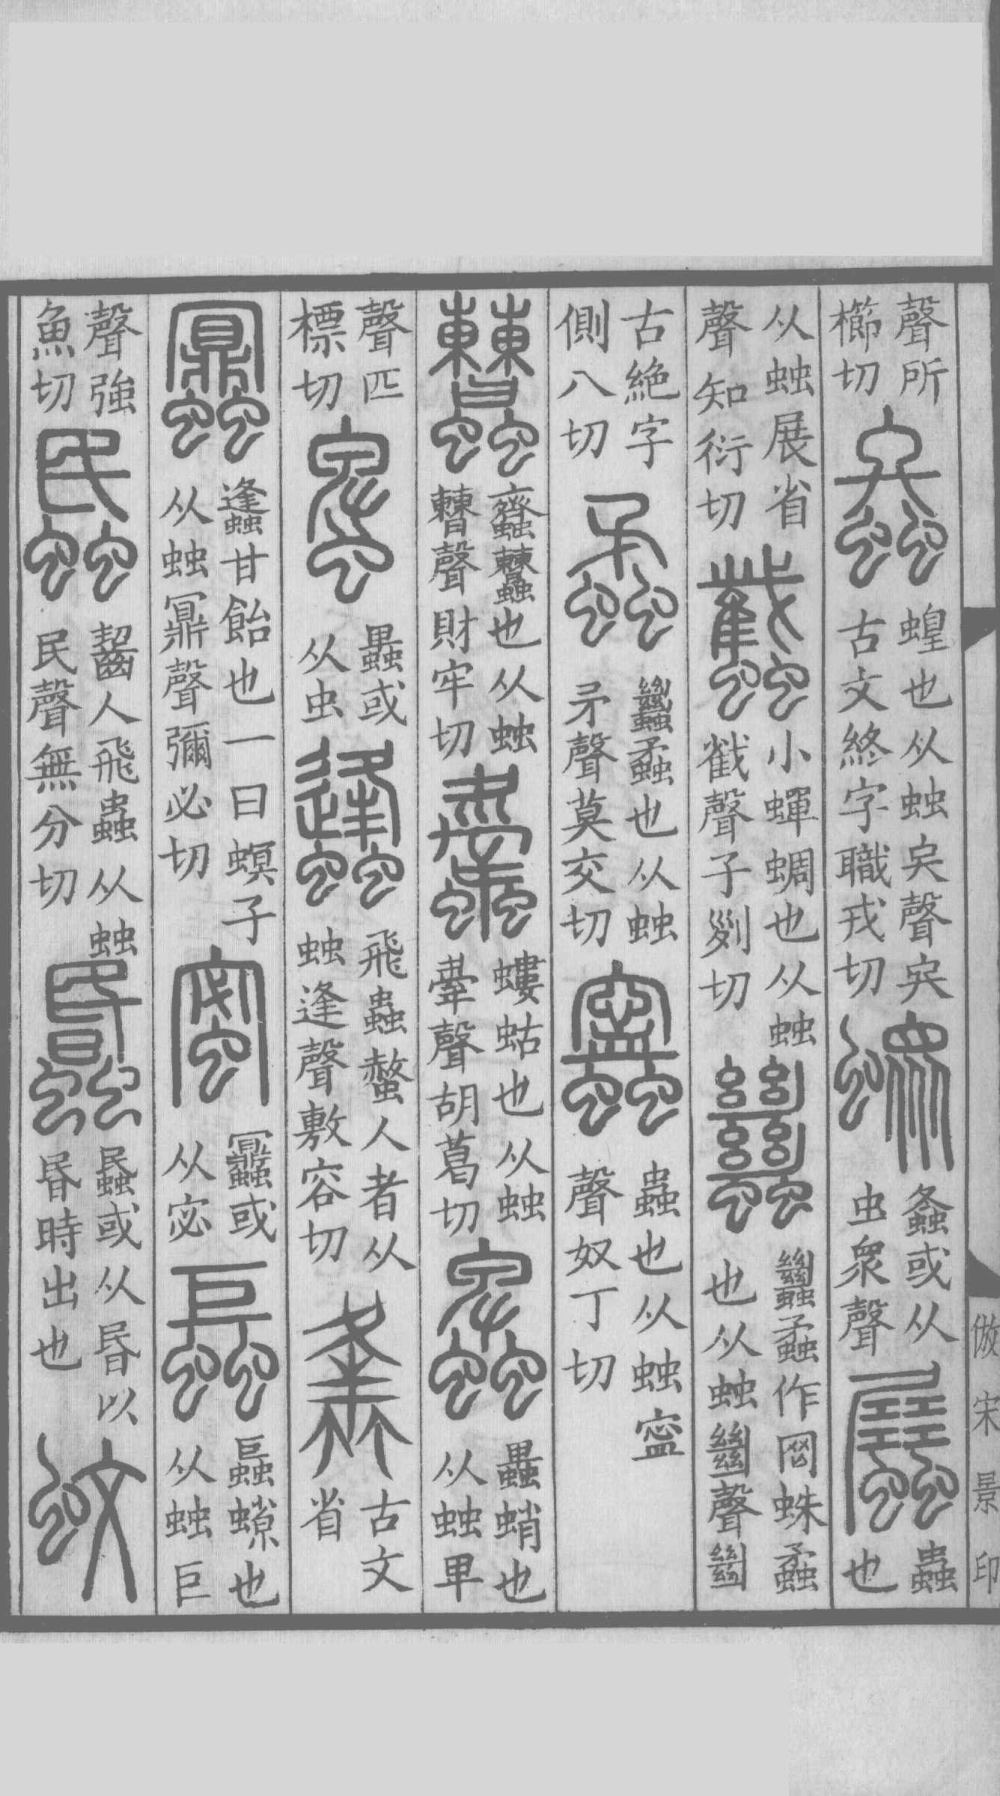 聲所
櫛切
螽
蝗也从䖵聲
古文終字職戎切
螽或从
虫眾聲
蟲
也
从䖵展省
聲知衍切
小蟬蜩也从䖵
截聲子列切
蠿
蠿蟊作罔蛛蟊
也从䖵𢇍聲𢇍
古絶字
側八切
蟊
蠿蟊也从䖵
矛聲莫交切
蟲也从䖵寍
聲奴丁切
也从䖵
聲財牢切
螻蛄也从䖵
舝聲胡葛切
蟲蛸也从䖵卑
聲匹
標切
蜱
或
从虫
飛蟲螫人者从
䖵逢聲敷容切
古文
省
甘飴也一曰螟子
从䖵鼏聲彌必切
蜜
或
从宓
蟝也
从䖵巨
聲強
魚切
齧人飛蟲从䖵
民聲無分切
或从昬以
昬時出也
蚊
倣宋景印